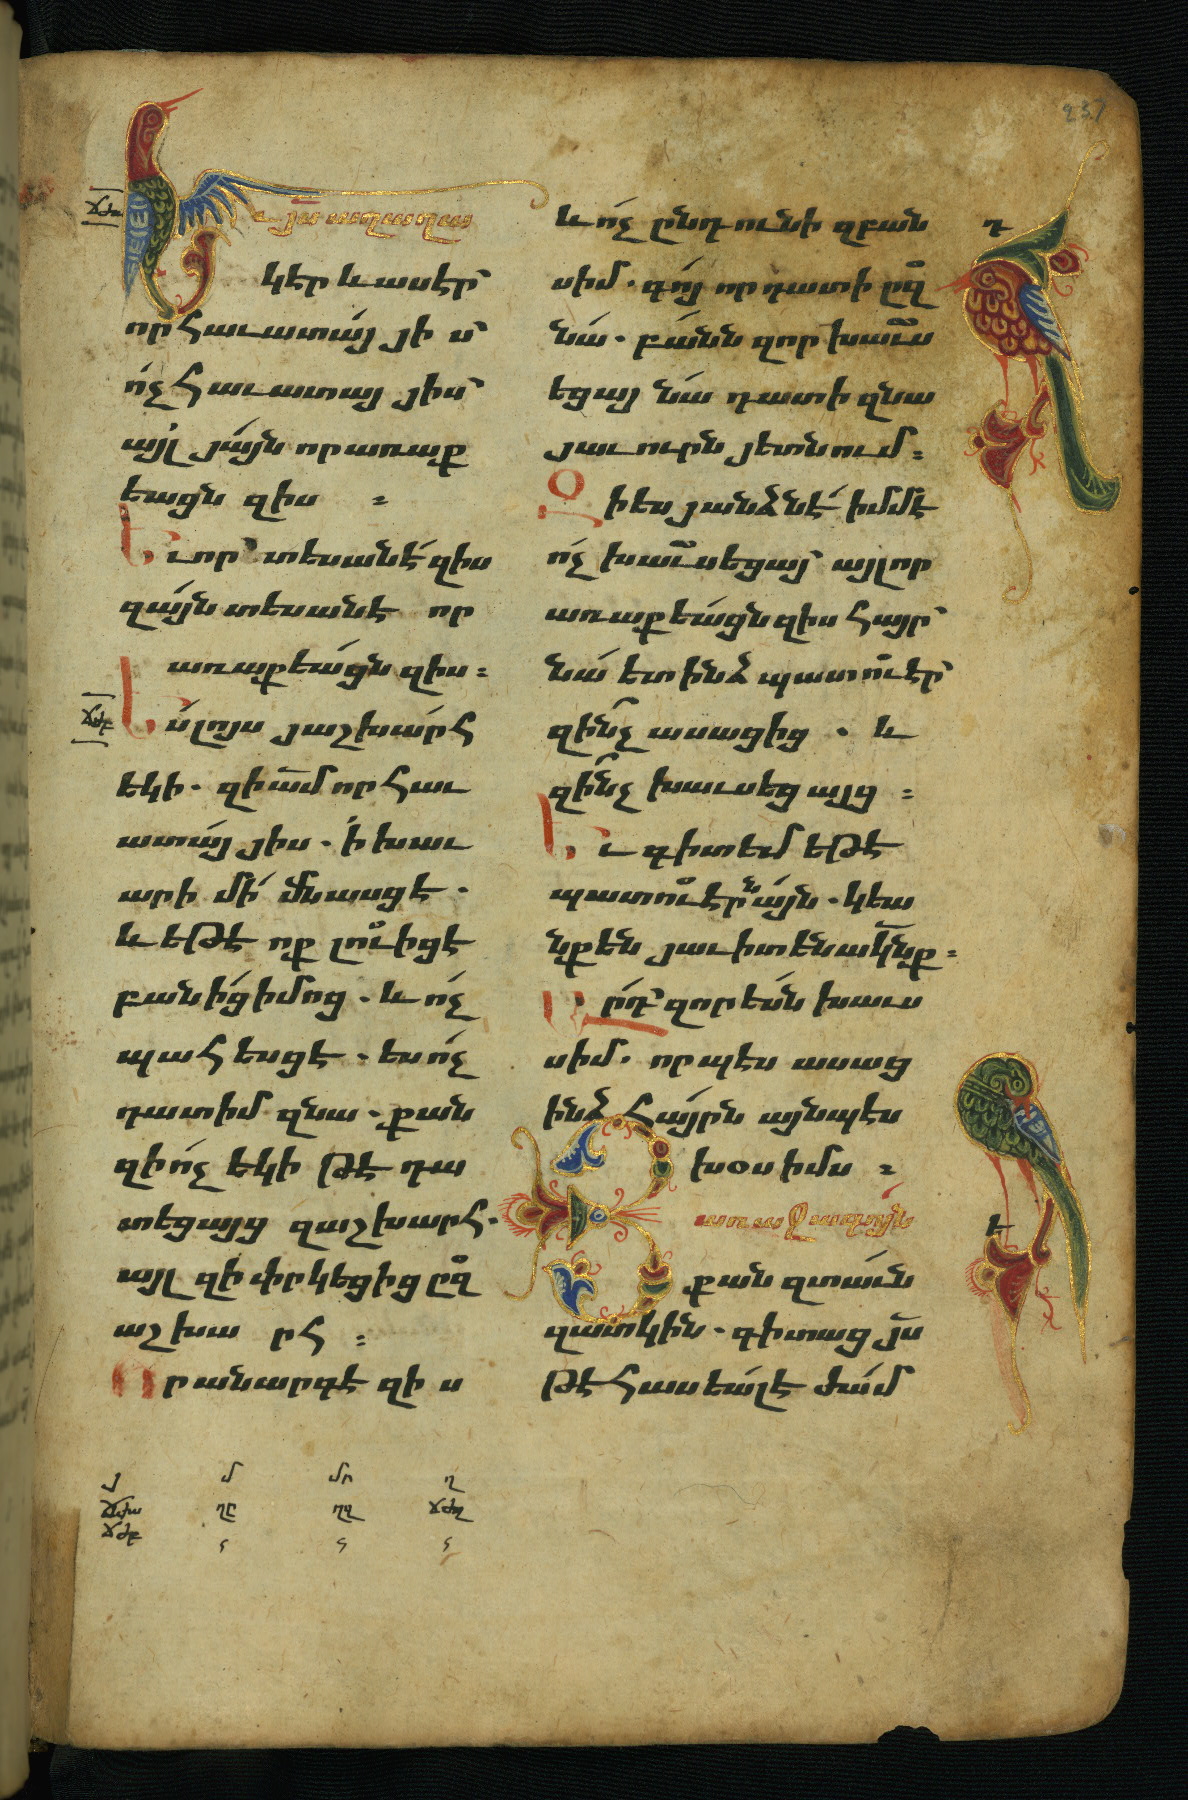 237
ճժա
և յս աղաղա
կէր և ասէր՝
որ հաւատայ յի ս՝
ոչ հաւատայ յիս՝
այլ յայն որ առաք
եացն զիս ։
Եւ որ՝ տեսանէ զիս
զայն տեսանէ որ
առաքեացն զիս ։
ճժբ
Ես լոյս յաշխարհ
եկի . զի ամ որ հաւ
ատայ յիս . ի խաւ
արի մի մնասցէ .
և եթէ ոք լուիցէ
բանից իմոց . և ոչ
պահեսցէ . ես ոչ
դատիմ զնա . քան
զի ոչ եկի թէ դա
տեցայց զաշխարհ .
այլ զի փրկեցից ըզ
աշխա րհ ։
Որ անարգէ զի ս
և ոչ ընդունի զբան
սիմ . գոյ որ դատի ըզ
նա . բանն զոր խաւս
եցայ նա դատի զնա
յաւուրն յետնում ։
Զի ես յանձնէ իմմէ
ոչ խաւսեցայ՝ այլ որ
առաքեացն զիս հայր՝
նա ետ ինձ պատուէր՝
զինչ ասացից . և
զինչ խաւսեցայց ։
Եւ գիտեմ եթէ
պատուէրն այն . կեա
նք են յաւիտենականք ։
Արդ՝ զոր ես խաւս
սիմ . որպէս ասաց
ինձ հայրն այնպէս
խօսիմս ։
առաջագոյն
քան զտաւն
զատկին . գիտաց յս
թէ հասեալ է ժամ
դ
ե
յ մ մր ղ
ճժա ղը
ճժբ